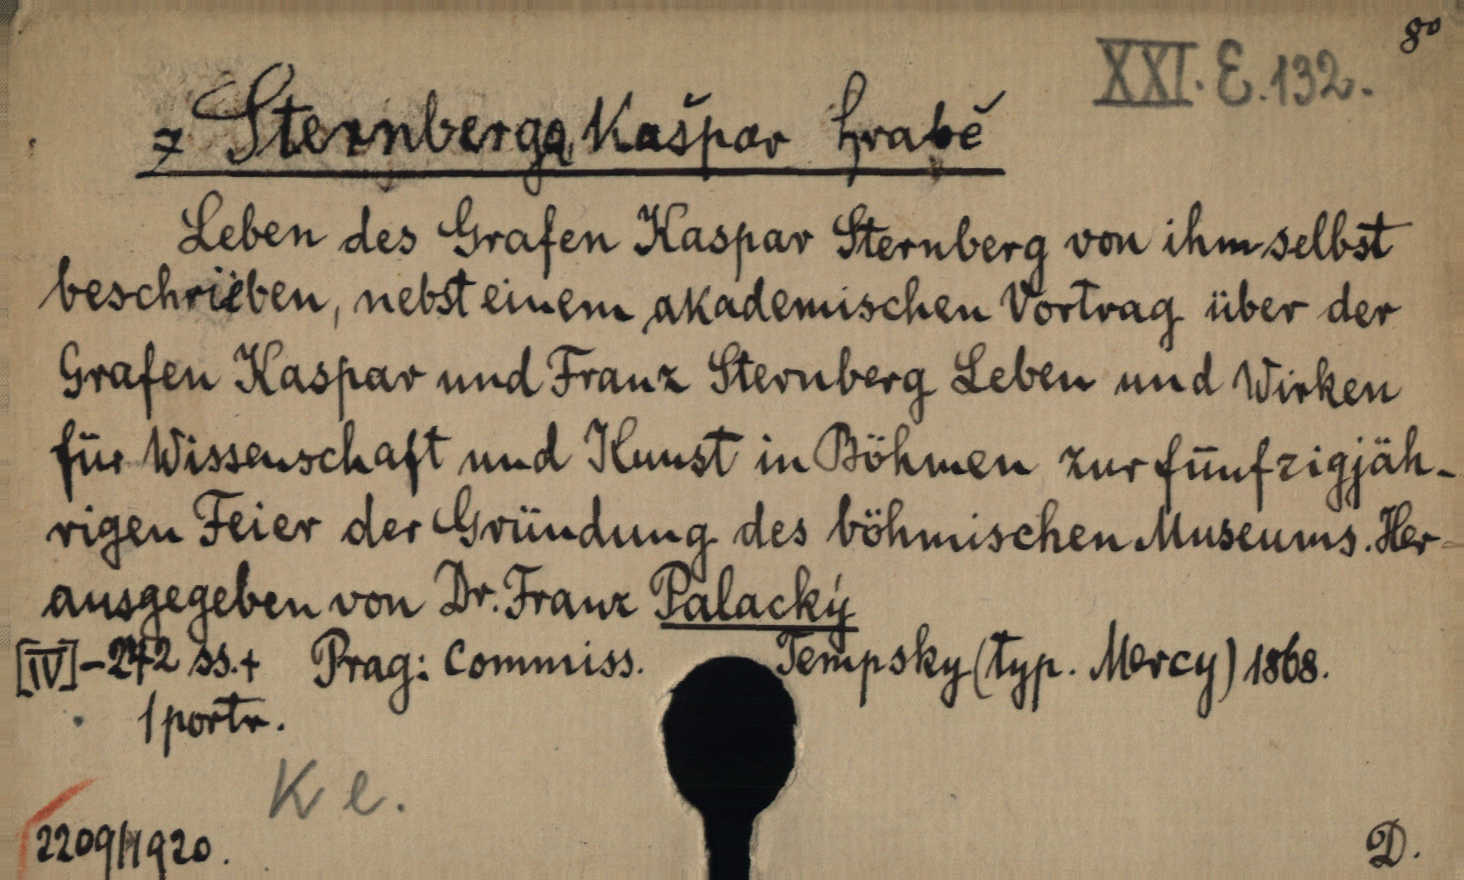 8°
XXI. E. 132.
z Sternberga, Kašpar hrabě
Leben des Grafen Kaspar Sternberg von ihm selbst
beschrieben, nebst einem akademischen Vortrag über der
Grafen Kaspar und Franz Sternberg Leben und Wirken
für Wissenschaft und Kunst in Böhmen zur fünfzigjäh-
rigen Feier der Gründung des böhmischen Museums. Her-
ausgegeben von Dr. Franz Palacký
[IV]-242 ss.+ Prag: Commiss. Tempsky (typ. Mercy) 1868.
1 portr.
K e.
2209/1920.
D.